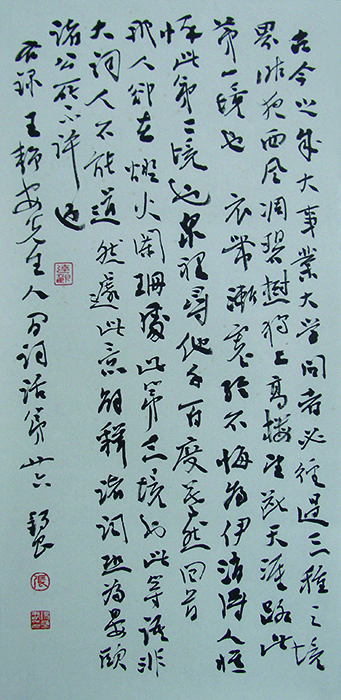 古今之成大事業大學問者必經過三種之境
界昨夜西風凋碧樹獨上高樓望盡天涯路此
第一境也衣帶漸寬終不悔為伊消得人憔
悴此第二境也眾裡尋他千百度驀然回首
那人卻在燈火闌珊處此第三境也此等語非
大詞人不能道然遽此意解釋諸詞恐為晏歐
諸公所不許也
右錄王靜安先生人間詞話第廿六